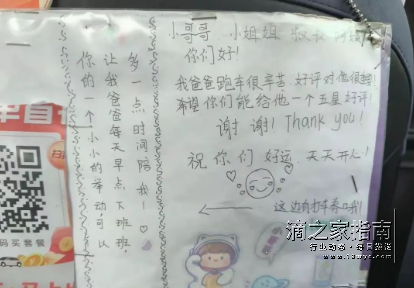 你的一个小小的举动,可以
让我爸爸每天早点下班
多一点时间陪我!
小哥哥 小姐姐 叔叔
你们好!
我爸爸跑车很辛苦,好评对他很
希望你们能给他一个五星好评!
谢谢! Thank you!
祝你们 好运 天天开心!
这边有打车券哦!
码买套餐
滴之家指南